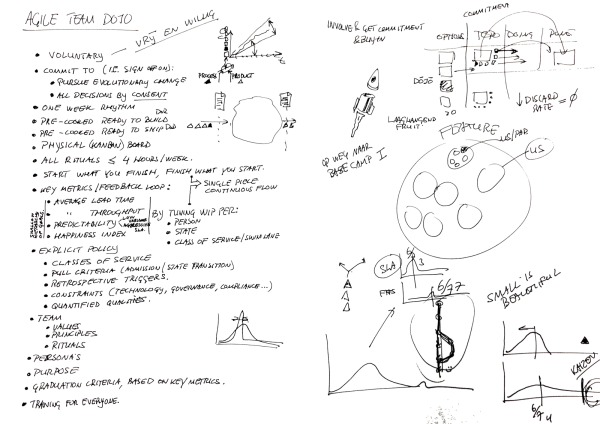 AGILE TEAM DOJO
VRIJ EN WILLIG
• VOLUNTARY
• COMMIT TO (I.E. SIGN UP ON):
• PURSUE EVOLUTIONARY CHANGE
• ALL DECISIONS BY CONSENT
• ONE WEEK RHYTHM
• PRE-COOKED READY TO BUILD DoR
• PRE-COOKED READY TO SHIP DoD
• PHYSICAL (KANBAN) BOARD
• ALL RITUALS ≤ 4 HOURS/WEEK.
• START WHAT YOU FINISH, FINISH WHAT YOU START.
SINGLE PIECE
CONTINUOUS FLOW
• KEY METRICS/FEEDBACK LOOP:
• AVERAGE LEAD TIME
• " THROUGHPUT
• PREDICTABILITY
SLA
• HAPPINESS INDEX
BY TUNING WIP PER:
• PERSON
• STATE
• CLASS OF SERVICE/SWIMLANE
• EXPLICIT POLICY
• CLASSES OF SERVICE
• PULL CRITERIA (ADMISSION/STATE TRANSITION)
• RETROSPECTIVE TRIGGERS.
• CONSTRAINTS (TECHNOLOGY, GOVERNANCE, COMPLIANCE...)
• QUANTIFIED QUALITIES.
• TEAM
• VALUES
• PRINCIPLES
• RITUALS
• PERSONA'S
• PURPOSE
• GRADUATION CRITERIA, BASED ON KEY METRICS.
• TRAINING FOR EVERYONE.
PROCESS
PRODUCT
INVOLVE & GET COMMITMENT
COMMITMENT
OPTIONS
TODO
DOING
DONE
DOJO
LAAGHANGEND
FRUIT
↓ DISCARD
RATE = ∅
OP WEG NAAR
BASE CAMP I
FEATURE
US/PAR
US
SLA
3
6/97
SMALL IS
BEAUTIFUL
KAIZEN